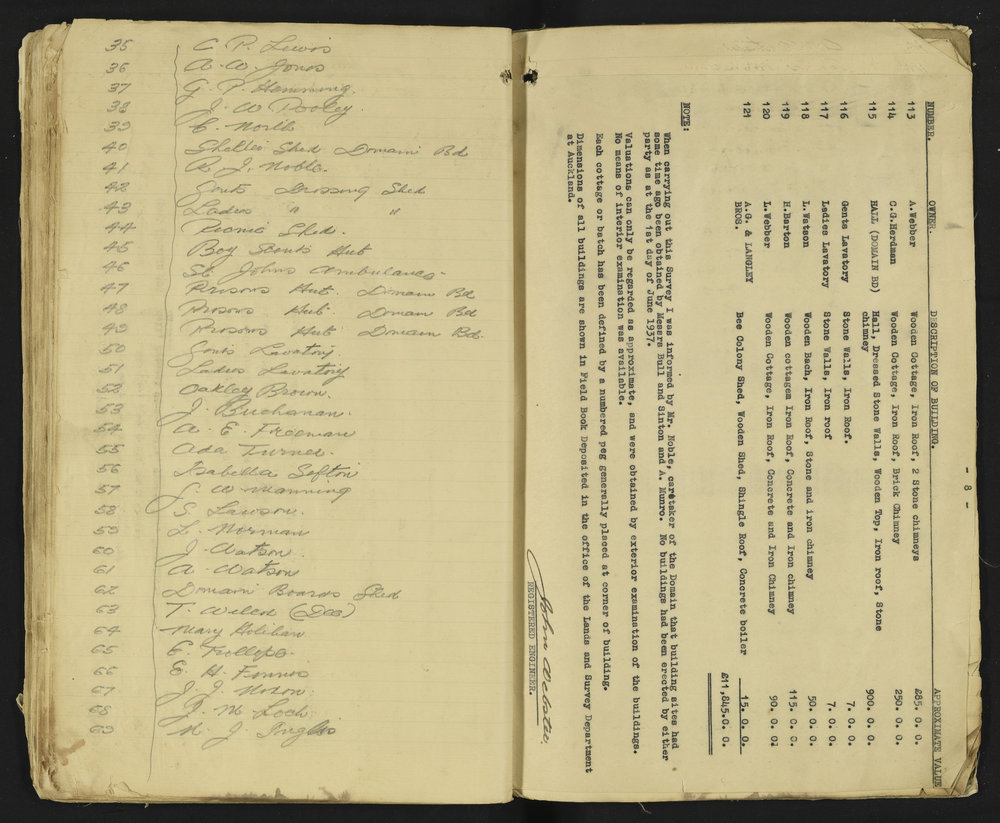 35 C. P. Lewis
36 A. W. Jones
37 G. P. Hemming.
38 J. W. Pooley.
39 C. North
40 Shelter Shed Domain Bd
41 R. J. Noble.
42 Gents Dressing Shed
43 Ladies " "
44 Picnic Shed.
45 Boy Scouts Hut
46 St Johns Ambulance
47 Prisons Hut. Domain Bd
48 Prisons Hut Domain Bd
49 Prisons Hut Domain Bd.
50 Gents Lavatory.
51 Ladies Lavatory
52 Oakley Brown.
53 J. Buchanan.
54 A. E. Freeman
55 Ada Turner.
56 Isabella Sefton
57 J. W Manning
58 S. Lawson.
59 L. Norman
60 J. Watson
61 A. Watson
62 Domain Boards Shed
63 T. Wilcox
64 Mary Holihan
65 E.
66 E. H.
67 J. J. Nixon.
68 J. M. Loch.
69 J. Inglis
- 8 -
NUMBER. OWNER. DESCRIPTION OF BUILDING. APPROXIMATE VALUE
113 A.Webber Wooden Cottage, Iron Roof, 2 Stone chimneys £85. 0. 0.
114 C.G.Herdman Wooden Cottage, Iron Roof, Brick Chimney 250. 0. 0.
115 HALL (DOMAIN BD) Hall, Dressed Stone Walls, Wooden Top, Iron roof, Stone
chimney 900. 0. 0.
116 Gents Lavatory Stone Walls, Iron Roof. 7. 0. 0.
117 Ladies Lavatory Stone Walls, Iron roof 7. 0. 0.
118 L.Watson Wooden Bach, Iron Roof, Stone and iron chimney 50. 0. 0.
119 H.Barton Wooden cottagem Iron Roof, Concrete and Iron chimney 115. 0. 0.
120 L.Webber Wooden Cottage, Iron Roof, Concrete and Iron Chimney 90. 0. 0.
121 A.G. & LANGLEY
BROS. Bee Colony Shed, Wooden Shed, Shingle Roof, Concrete boiler 15. 0. 0.
£11,845. 0. 0.
NOTE:
When carrying out this Survey I was informed by Mr. Noble, caretaker of the Domain that building sites had
some time ago been obtained by Messrs Bull and Sinton and A. Munro. No buildings had been erected by either
party as at the 1st day of June 1937.
Valuations can only be regarded as approximate, and were obtained by exterior examination of the buildings.
No means of interior examination was available.
Each cottage or batch has been defined by a numbered peg generally placed at corner of building.
Dimensions of all buildings are shown in Field Book Deposited in the office of the Lands and Survey Department
at Auckland.
John Webster.
REGISTERED ENGINEER.